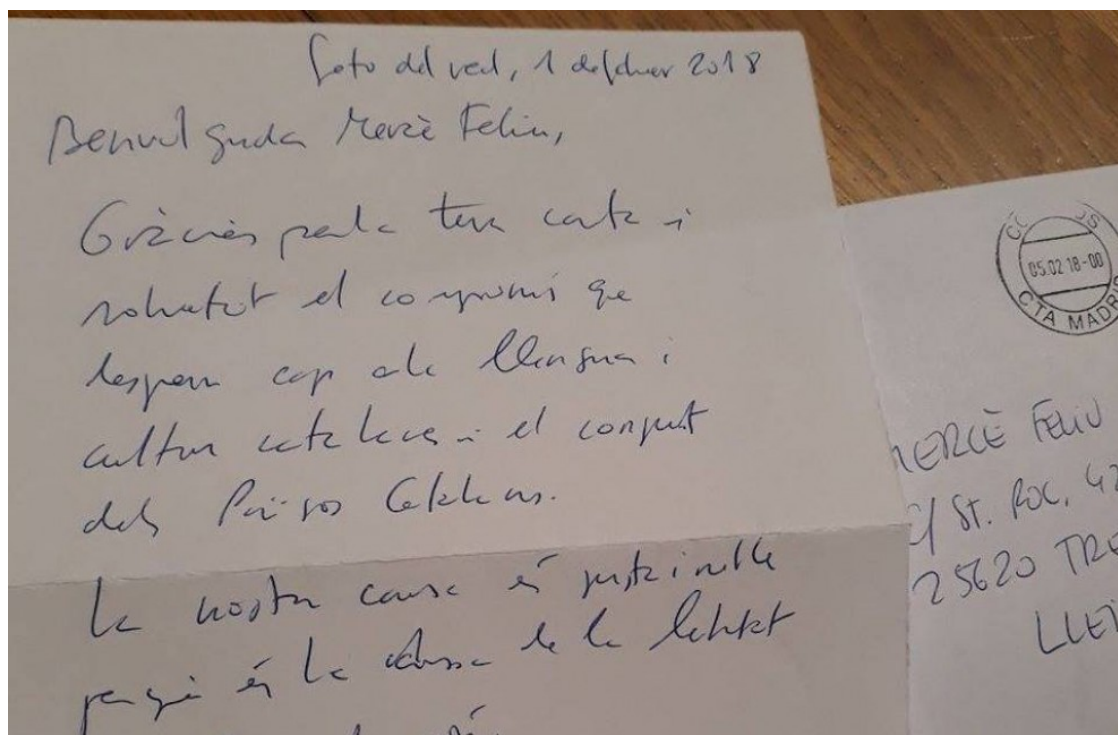 Soto del real, 1 de febrer 2018
Benvolguda Mercè Feliu,
Gràcies per la teva carta i
sobretot el compromís que
després cap a la llengua i
cultura catalanes i el conjunt
dels Països Catalans.
La nostra causa és justa i noble
perquè és la causa de la llibertat
05.02 18-00
CTA MADRID
MERCÈ FELIU
C/ ST. ROC, 42
25620 TRE
LLEI